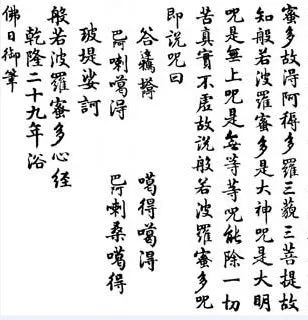 蜜多故得阿耨多羅三藐三菩提故
知般若波羅蜜多是大神咒是大明
咒是無上咒是無等等咒能除一切
苦真實不虛故說般若波羅蜜多咒
即說咒曰
噶得噶得
巴阿喇噶得 巴阿喇桑噶得
玻堤娑訶
般若波羅蜜多心經
乾隆二十九年浴
佛日御筆